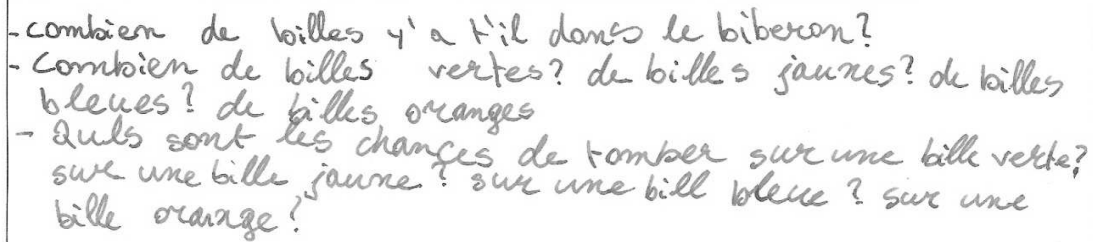 - combien de billes y'a t'il dans le biberon?
- Combien de billes vertes? de billes jaunes? de billes
bleues? de billes oranges
- Quls sont les chances de tomber sur une bille verte?
sur une bille jaune? sur une bill bleue? sur une
bille orange?